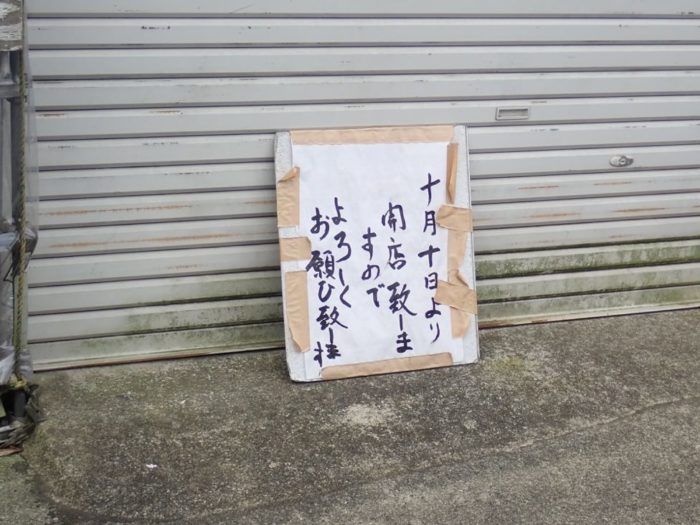 十月十日より
開店致しま
すので
よろしく
お願ひ致し枩